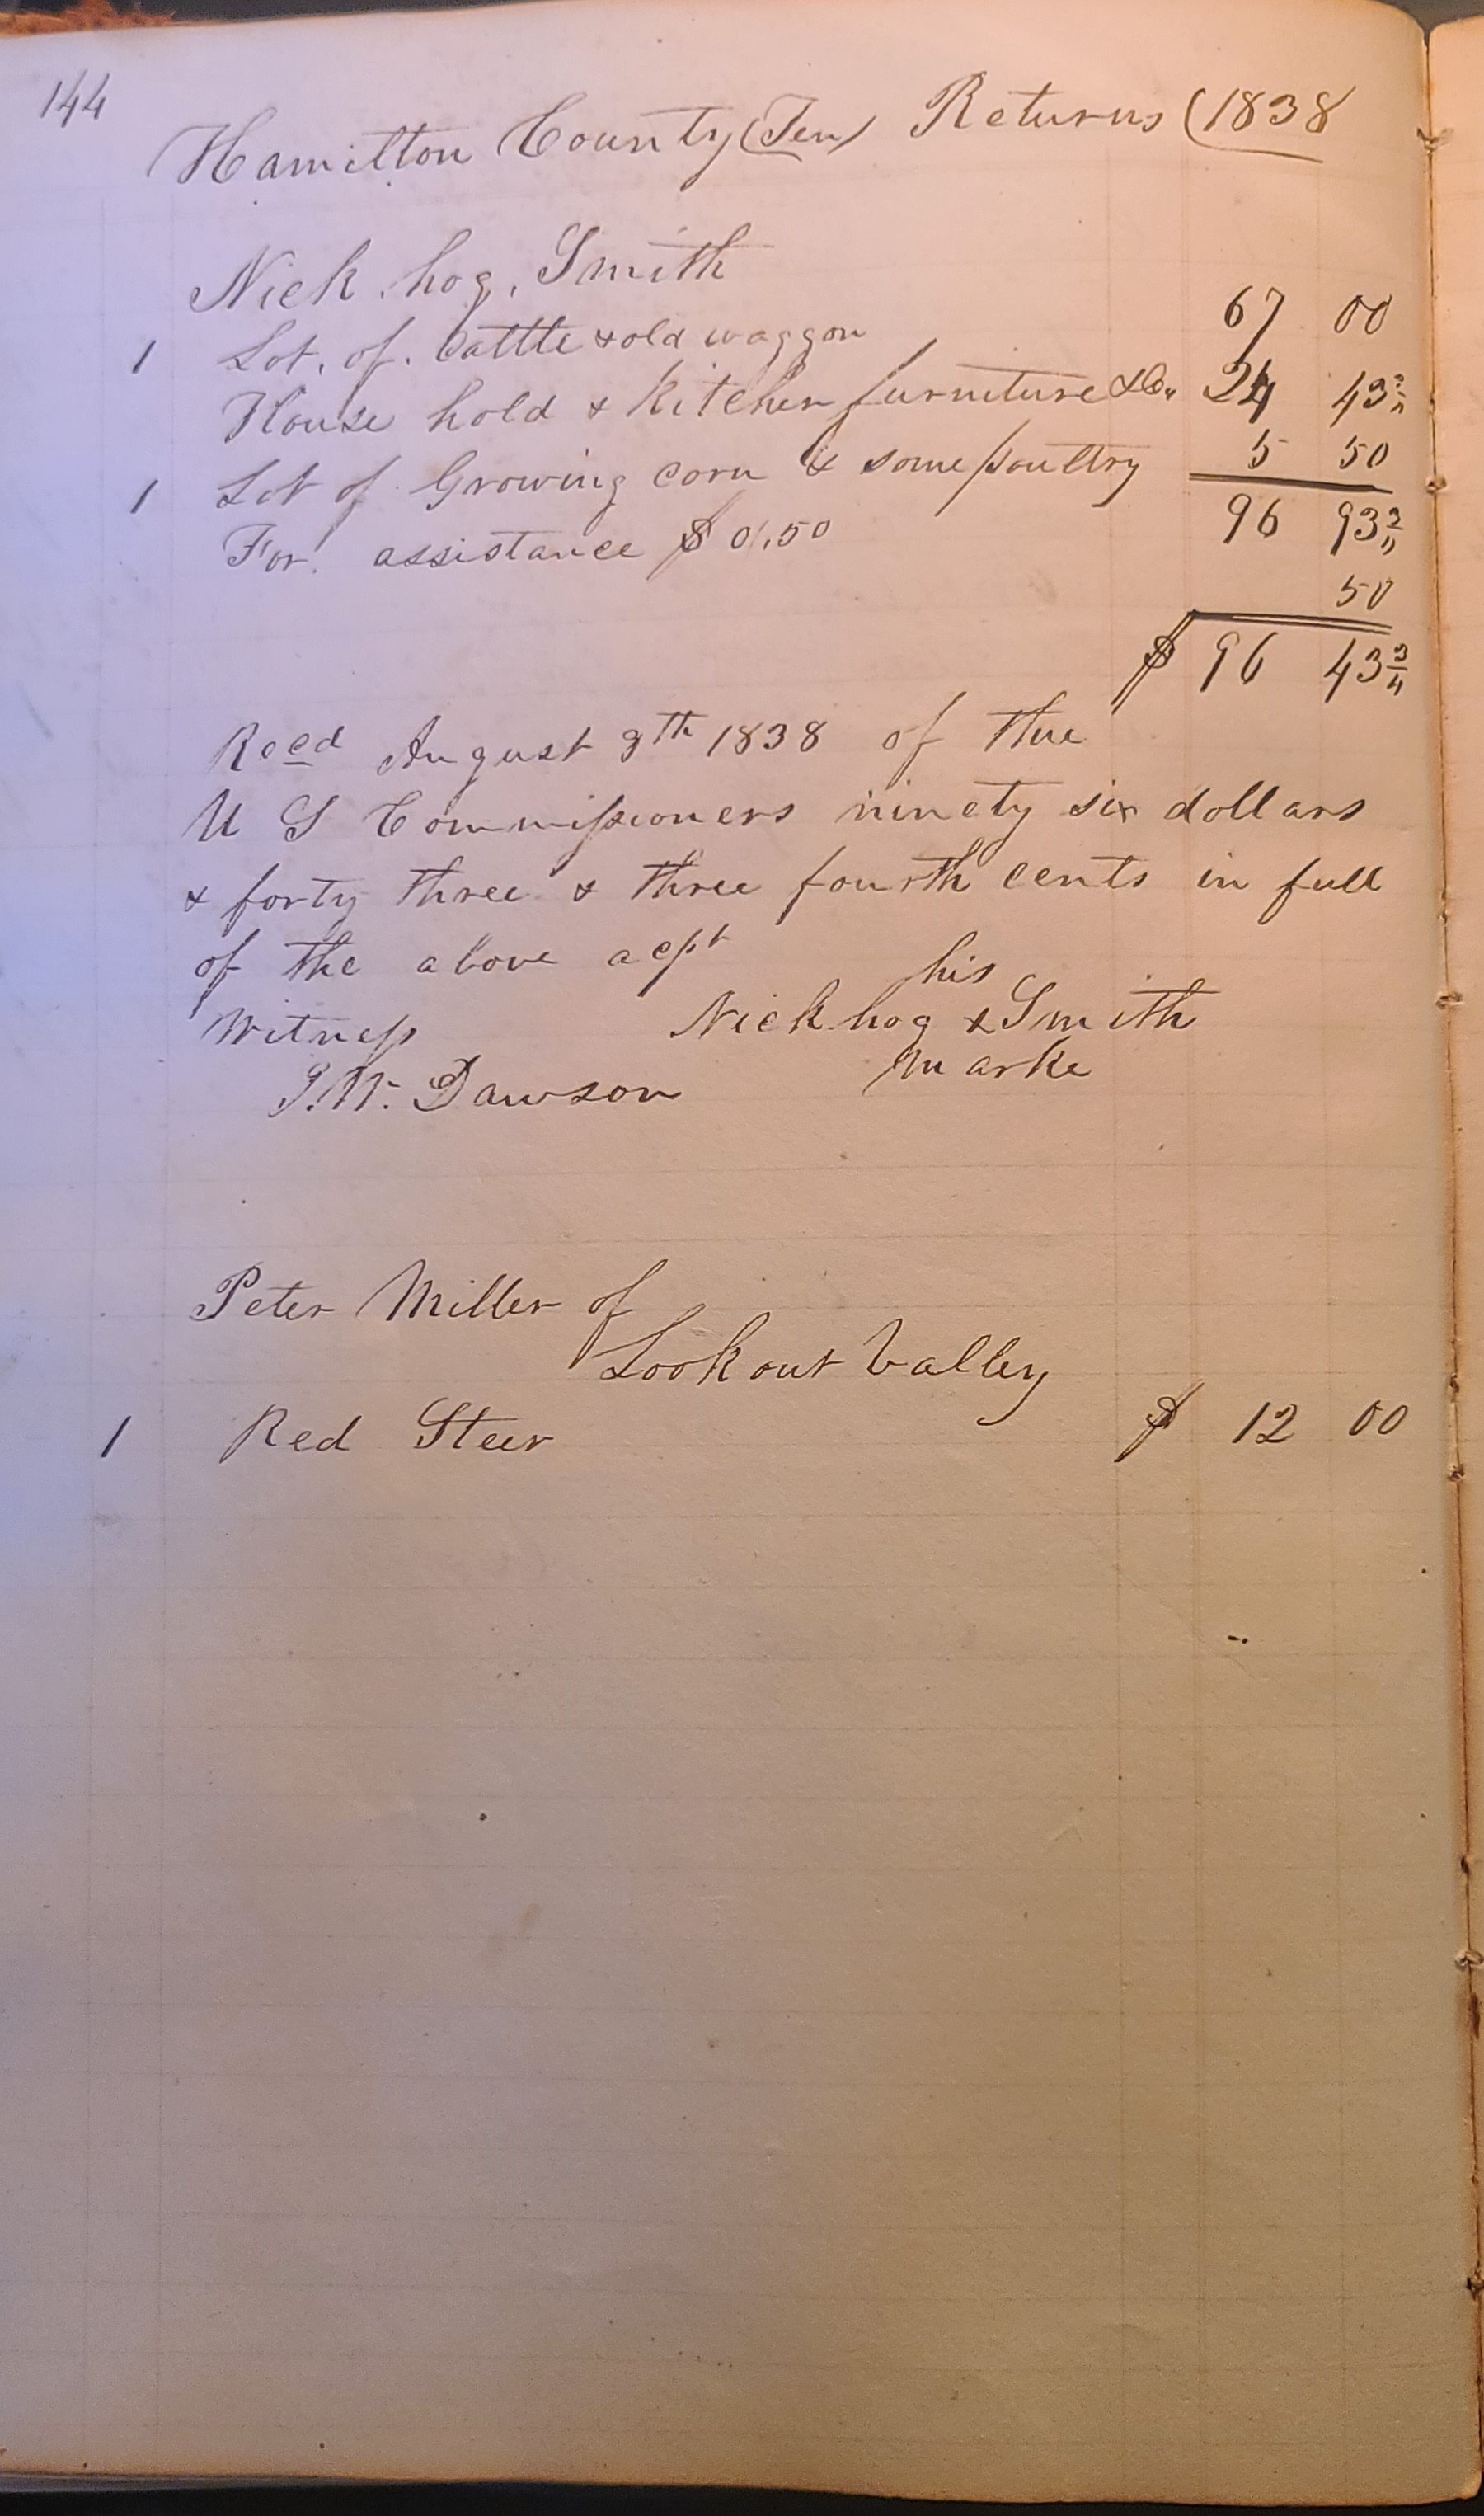 144
Hamilton County (Ten) Returns (1838
Nick. hog. Smith
1 Lot. of. Cattle & old waggon 67 00
House hold & Kitchen furniture &c. 24 43 3/4
1 Lot of Growing corn & some poultry 5 50
96 93 3/4
For. assistance $ 0.50
50
$ 96 43 3/4
Recd August 9th 1838 of the
U S Commissioners ninety six dollars
& forty three & three fourth cents in full
of the above acpt
his
Witness Nick hog x Smith
marke
Dawson
Peter Miller of
Lookout Valley
1 Red Steer $ 12 00